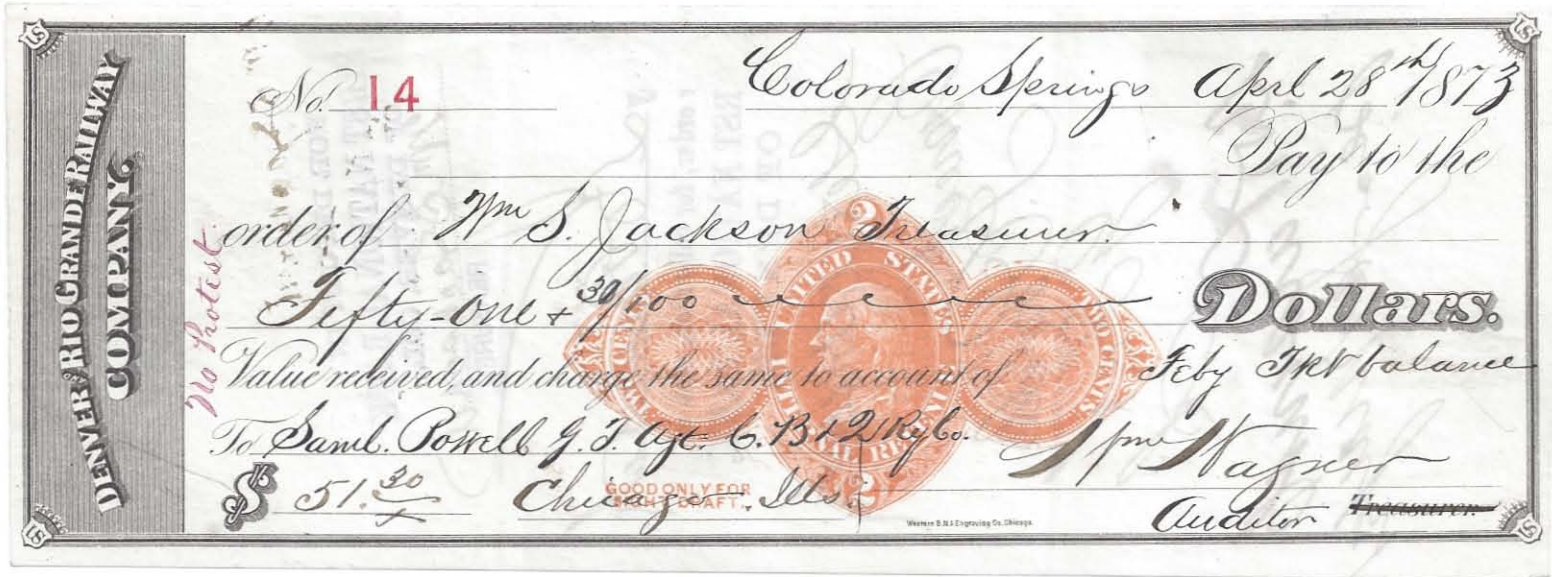 DENVER & RIO GRANDE RAILWAY
COMPANY.
No. 14
Colorado Springs April 28th 1873
Pay to the
order of Wm S. Jackson Treasurer.
Fifty-one + 30/100 Dollars.
Value received, and charge the same to account of Feby Tkt balance
To Saml. Powell G. T. Agt. C. B & Q Ry Co.
Wagner
$ 51.30 Chicago Ills.
Auditor Treasurer.
No Protest
UNITED STATES
INTERNAL REVENUE
TWO CENTS
TWO CENTS
2
2
GOOD ONLY FOR
SIGHT DRAFT.
Western B.N. & Engraving Co. Chicago.
US
US
US
US